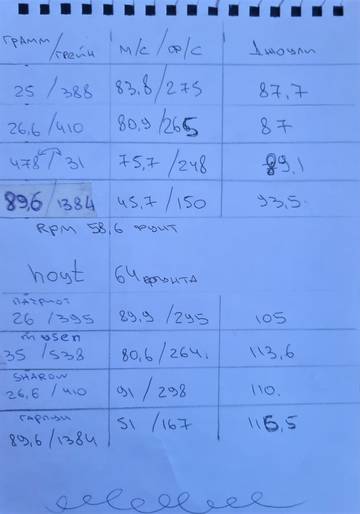 грамм/грейн м/с/ф/с Джоули
25/388 83,8/275 87,7
26,6/410 80,9/265 87
478/31 75,7/248 89,1
89,6/1384 45,7/150 93,5
RPM 58,6 фунт
hoyt 64 фунта
патриот
26/395 89,9/295 105
musen
35/538 80,6/264. 113,6
SHAROW
26,6/410 91/298 110.
гарпун
89,6/1384 51/167 116,5